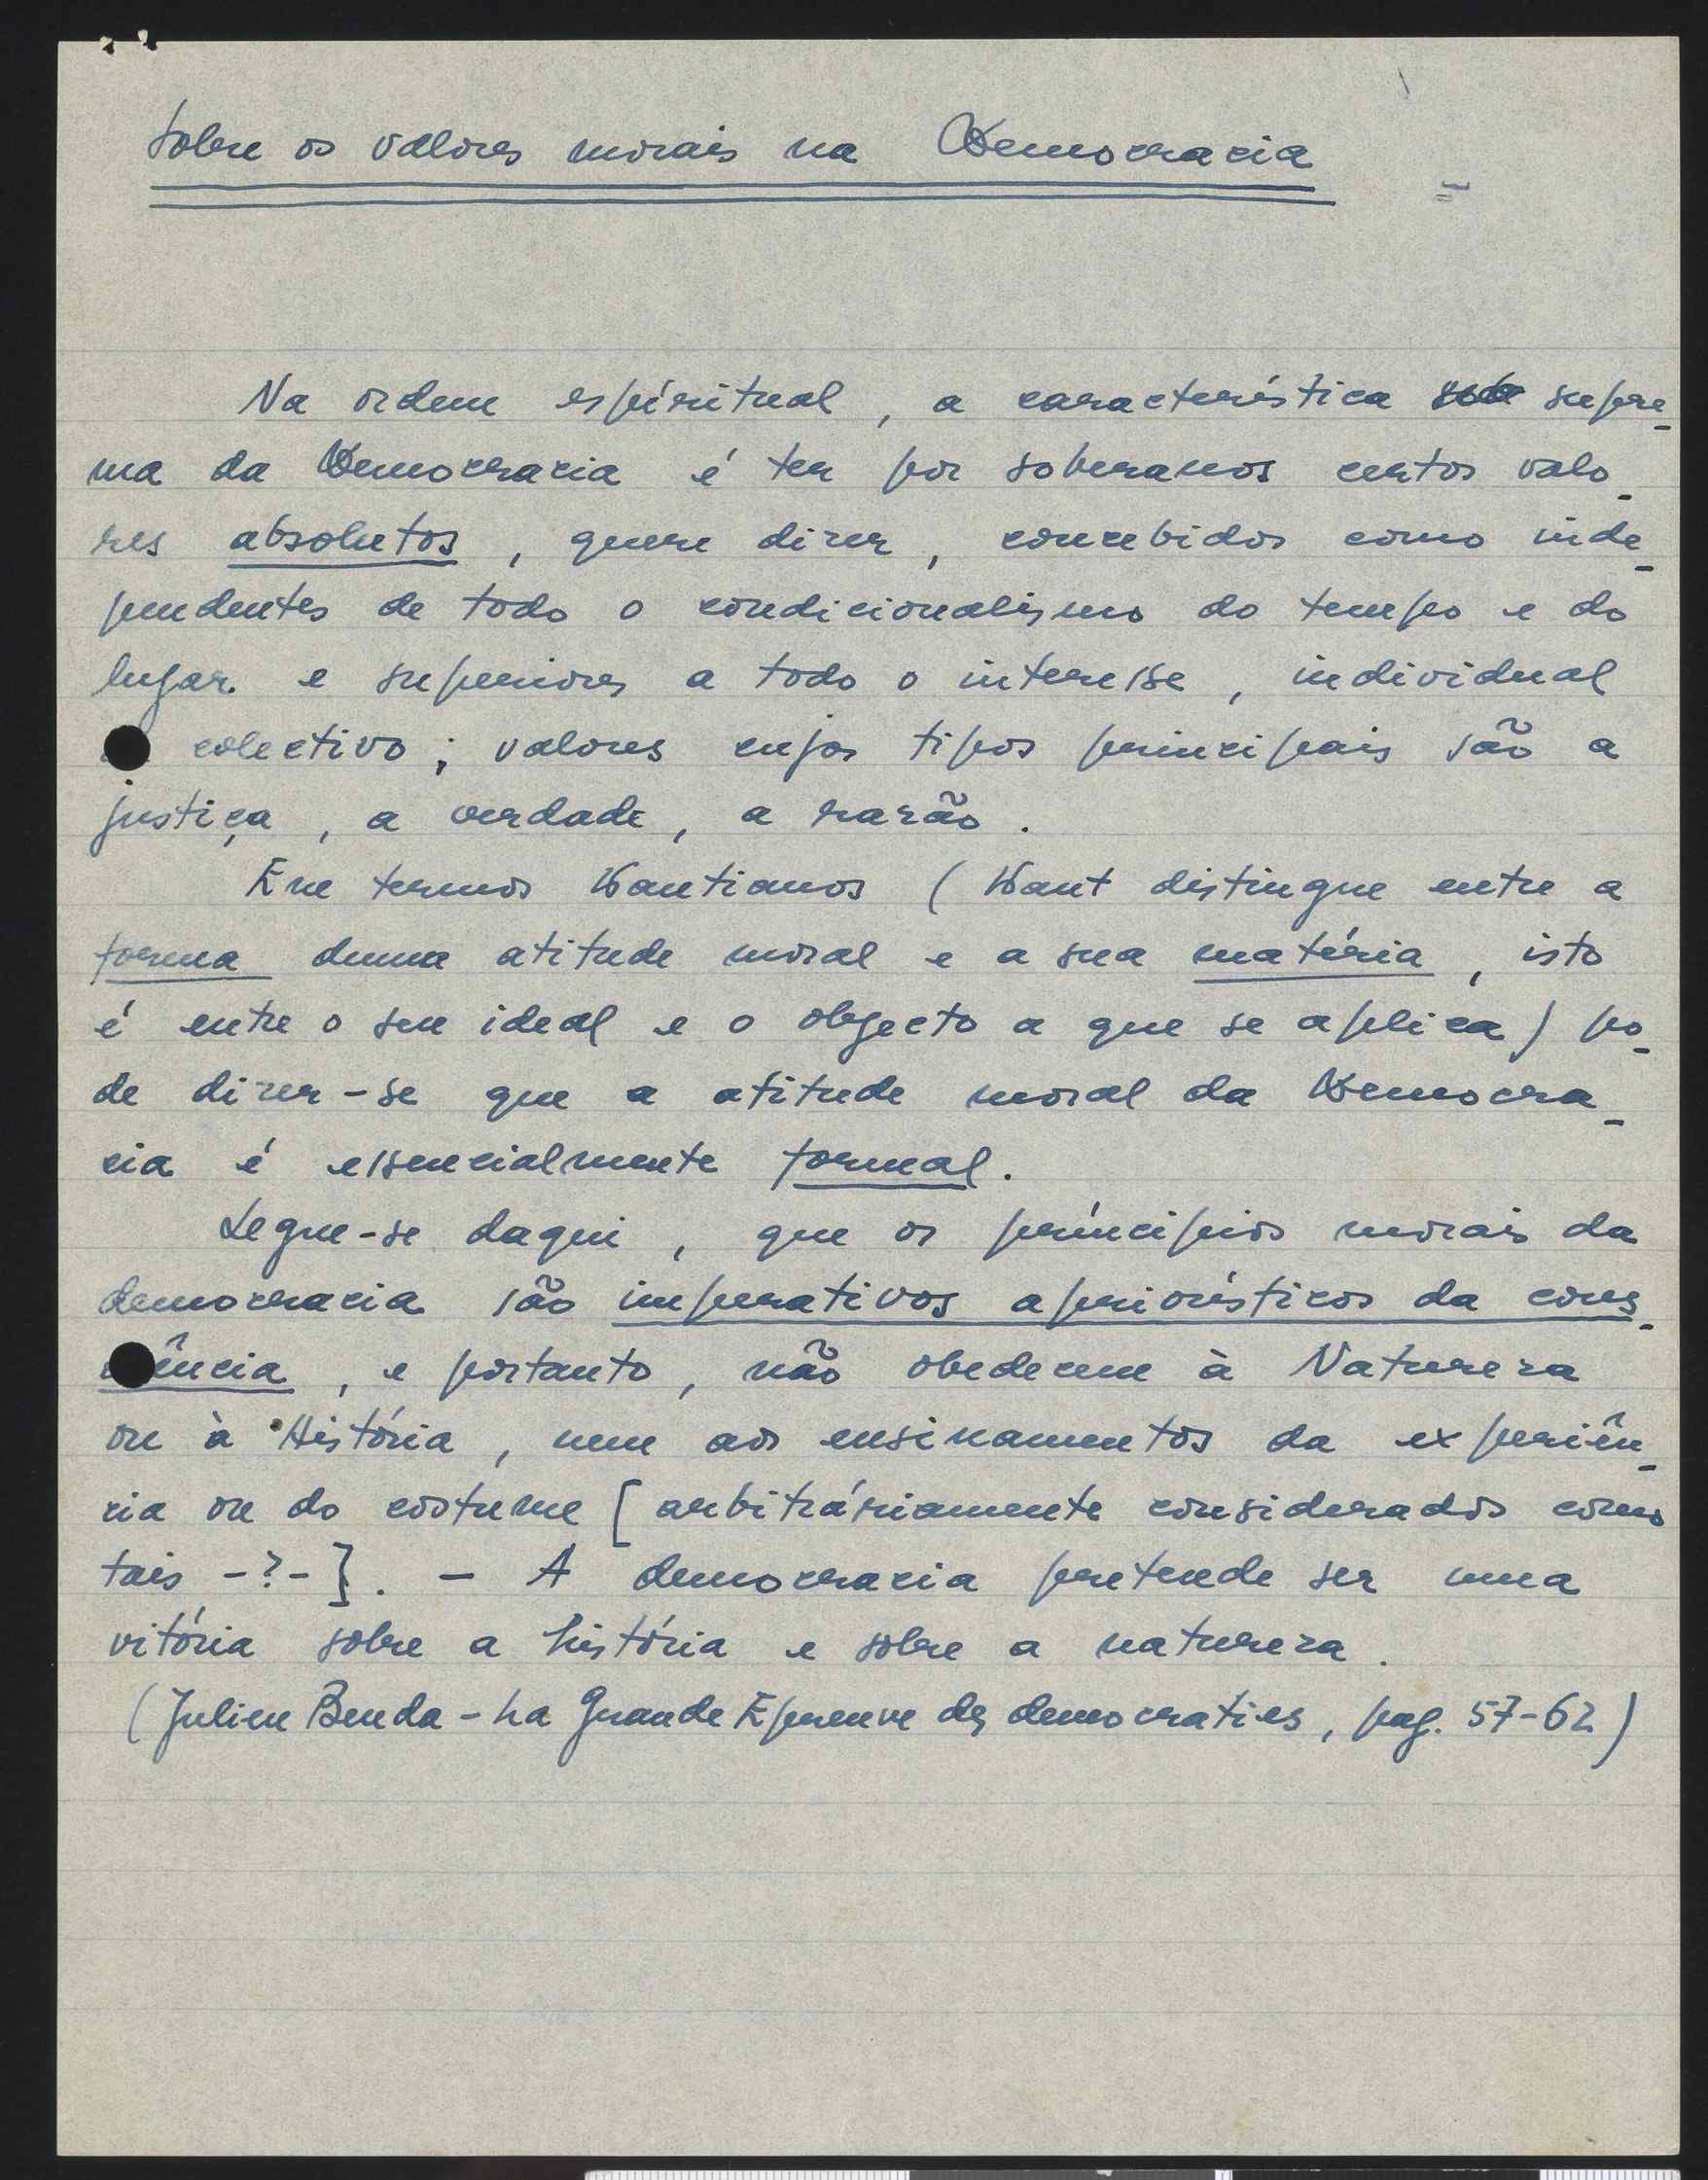 Sobre os valores morais na Democracia
Na ordem espíritual, a característica supre-
ma da Democracia é ter por soberanos certos valo-
res absolutos, quere dizer, concebidos como inde-
pendentes de todo o condicionalismo do tempo e do
lugar e superiores a todo o interesse, individual
colectivo; valores cujos tipos principais são a
justiça, a verdade, a razão.
Em termos Kantianos (Kant distingue entre a
forma duma atitude moral e a sua matéria, isto
é entre o seu ideal e o objecto a que se aplica) po-
de dizer-se que a atitude moral da Democra-
cia é essencialmente formal.
Segue-se daqui, que os príncipios morais da
democracia são imperativos apriorísticos da cons-
ência, e portanto, não obedecem à Natureza
ou à História, nem aos ensinamentos da experiên-
cia ou do costume [arbitráriamente considerados como
tais -?-]. - A democracia pretende ser uma
vitória sobre a história e sobre a natureza.
(Julien Benda - La Grande Epreuve des democraties, pag. 57-62)